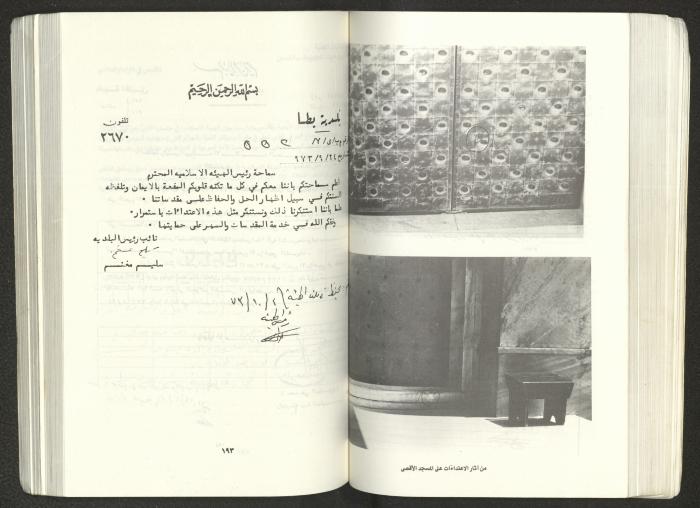 بسم الله الرحمن الرحيم
بلدية بطا
تلفون
٢٦٧٠
٥٥٢
٩٧٣/٩/٢٤
سماحة رئيس الهيئه الاسلاميه المحترم
سماحتكم باننا معكم في كل ما تكنه قلوبكم المفعمة بالايمان وتلفظه
السنتكم في سبيل اظهار الحق والحفاظ على مقدساتنا ٠
علما باننا استنكرنا ذلك ونستنكر مثل هذه الاعتداءات باستمرار٠
وفقكم الله في خدمة المقدسات والسهر على حمايتها ٠
نائب رئيس البلديه
سليم مغنم
٧٣/١٠/٢
١٩٣
من آثار الاعتداءات على المسجد الأقصى